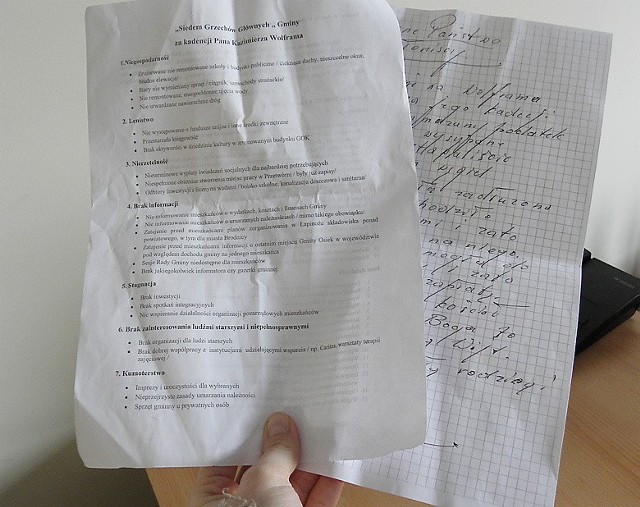 „Siedem Grzechów Głównych „ Gminy
za kadencji Pana Kazimierza Wolframa
1.Niegospodarność
Zrujnowane nie remontowane szkoły i budynki publiczne / cieknące dachy, nieszczelne okna,
brudne elewacje/
Stary nie wymieniany sprzęt / ciągnik, samochody strażackie/
Nie remontowane, ujęcia wody
Nie utwardzane nawierzchnie dróg
2. Lenistwo
Nie występowanie o fundusze unijne i inne środki zewnętrzne
Przestarzała księgowość
Brak aktywności w działaniu kultury w budynku GOK
3. Nierzetelność
Nieterminowe wpłaty świadczeń socjalnych dla najbardziej potrzebujących
Niespełnione obietnice stworzenia miejsc pracy w Przetwórni / były już zapisy/
Odbiory inwestycji z licznymi wadami / boisko szkolne, kanalizacja deszczowa i sanitarna/
4. Brak informacji
Nie informowanie mieszkańców o wydatkach, kosztach i finansach Gminy
Nie informowanie mieszkańców o umarzanych należnościach / mimo takiego obowiązku/
Zatajenie przed mieszkańcami planów zorganizowania w Łapinożu składowiska ponad
powiatowego, w tym dla miasta Brodnicy
Zatajenie przed mieszkańcami informacji o ostatnim miejscu Gminy Osiek w województwie
pod względem dochodu gminy na jednego mieszkańca
Sesje Rady Gminy niedostępne dla mieszkańców
Brak jakiegokolwiek informatora czy gazetki gminnej
5. Stagnacja
Brak inwestycji
Brak spotkań integracyjnych
Nie wspieranie działalności organizacji pozarządowych mieszkańców
6. Brak zainteresowania ludźmi starszymi i niepełnosprawnymi
Brak organizacji dla ludzi starszych
Brak dobrej współpracy z instytucjami udzielającymi wsparcia / np. Caritas, warsztaty terapii
zajęciowej /
7. Kumoterstwo
Imprezy i uroczystości dla wybranych
Nieprzejrzyste zasady umarzania należności
Sprzęt gminny u prywatnych osób
Państwo
na Wolframa
jego kadencji
węgiel
zadłużona
chodziło
i zato
na niego,
i zato
Boga za
Wójt.
rodziny!